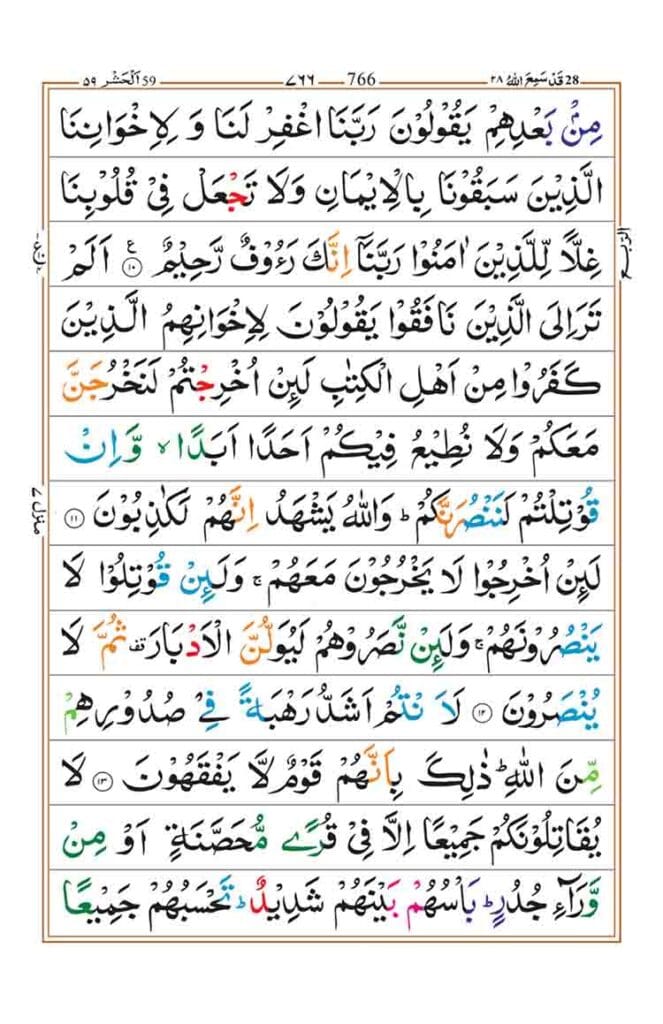 28 قَدْ سَمِعَ اللّٰهُ ٢٨ 766 ٧٦٦ 59 اَلْحَشْر ٥٩
مِنْۢ بَعْدِهِمْ يَقُوْلُوْنَ رَبَّنَا اغْفِرْ لَنَا وَ لِاِخْوَانِنَا
الَّذِيْنَ سَبَقُوْنَا بِالْاِيْمَانِ وَلَا تَجْعَلْ فِيْ قُلُوْبِنَا
غِلًّا لِّلَّذِيْنَ اٰمَنُوْا رَبَّنَاۤ اِنَّكَ رَءُوْفٌ رَّحِيْمٌ ۝١٠ ع اَلَمْ
الرّبع
تَرَ اِلَى الَّذِيْنَ نَافَقُوْا يَقُوْلُوْنَ لِاِخْوَانِهِمُ الَّذِيْنَ
كَفَرُوْا مِنْ اَهْلِ الْكِتٰبِ لَئِنْ اُخْرِجْتُمْ لَنَخْرُجَنَّ
مَعَكُمْ وَلَا نُطِيْعُ فِيْكُمْ اَحَدًا اَبَدًا ۙ وَّاِنْ
قُوْتِلْتُمْ لَنَنْصُرَنَّكُمْ ؕ وَاللّٰهُ يَشْهَدُ اِنَّهُمْ لَكٰذِبُوْنَ ۝١١
منزل ٧
لَئِنْ اُخْرِجُوْا لَا يَخْرُجُوْنَ مَعَهُمْ ۚ وَلَئِنْ قُوْتِلُوْا لَا
يَنْصُرُوْنَهُمْ ۚ وَلَئِنْ نَّصَرُوْهُمْ لَيُوَلُّنَّ الْاَدْبَارَ ۫ ثُمَّ لَا
يُنْصَرُوْنَ ۝١٢ لَاَ نْتُمْ اَشَدُّ رَهْبَةً فِيْ صُدُوْرِهِمْ
مِّنَ اللّٰهِ ؕ ذٰلِكَ بِاَنَّهُمْ قَوْمٌ لَّا يَفْقَهُوْنَ ۝١٣ لَا
يُقَاتِلُوْنَكُمْ جَمِيْعًا اِلَّا فِيْ قُرًى مُّحَصَّنَةٍ اَوْ مِنْ
وَّرَآءِ جُدُرٍ ؕ بَاْسُهُمْ بَيْنَهُمْ شَدِيْدٌ ؕ تَحْسَبُهُمْ جَمِيْعًا